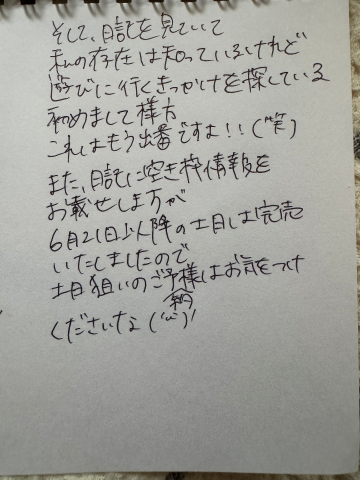 そして、日記を見ていて
私の存在は知っているけれど
遊びに行くきっかけを探している
初めまして様方
これはもう出番ですよ!!(笑)
また、日記に空き枠情報を
お載せしますが
6月21日以降の土日は完売
いたしましたので
土日狙いのご予約様はお気をつけ
くださいな(´ω`)!